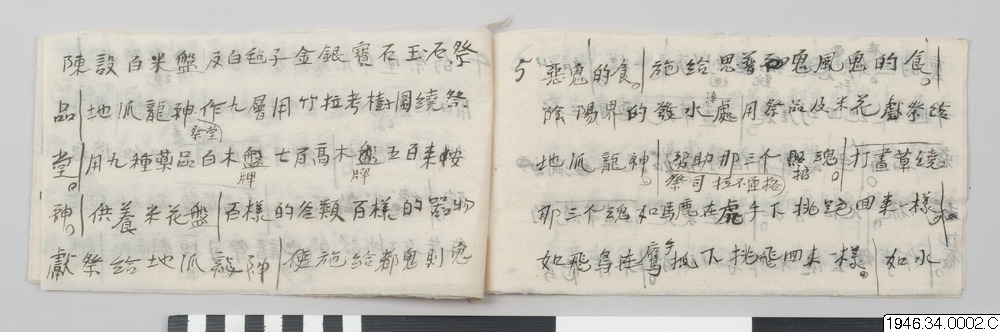 陳設白米盤反白毡子金銀寶石玉石祭
品｜地爪龍神作九層用竹拉考樹圍繞祭
祭堂
堂。用九種藥品白木盤七百高木盤五百來按
牌 牌
神。｜供養米花盤｜百樣的谷類百樣的器物
獻祭給地爪龍神｜使施給都鬼則鬼
5 惡鬼的食。｜施給恩普鬼風鬼的食。
陰陽界的發水處用祭品及米花獻祭給
地爪龍神。｜幫助那三个魂。｜打晝草繞
祭司
那三个魂如馬鹿在虎手下挑跑回來一樣。
如飛鳥在鷹抓下挑飛回來一樣。｜如水
1946.34.0002 C